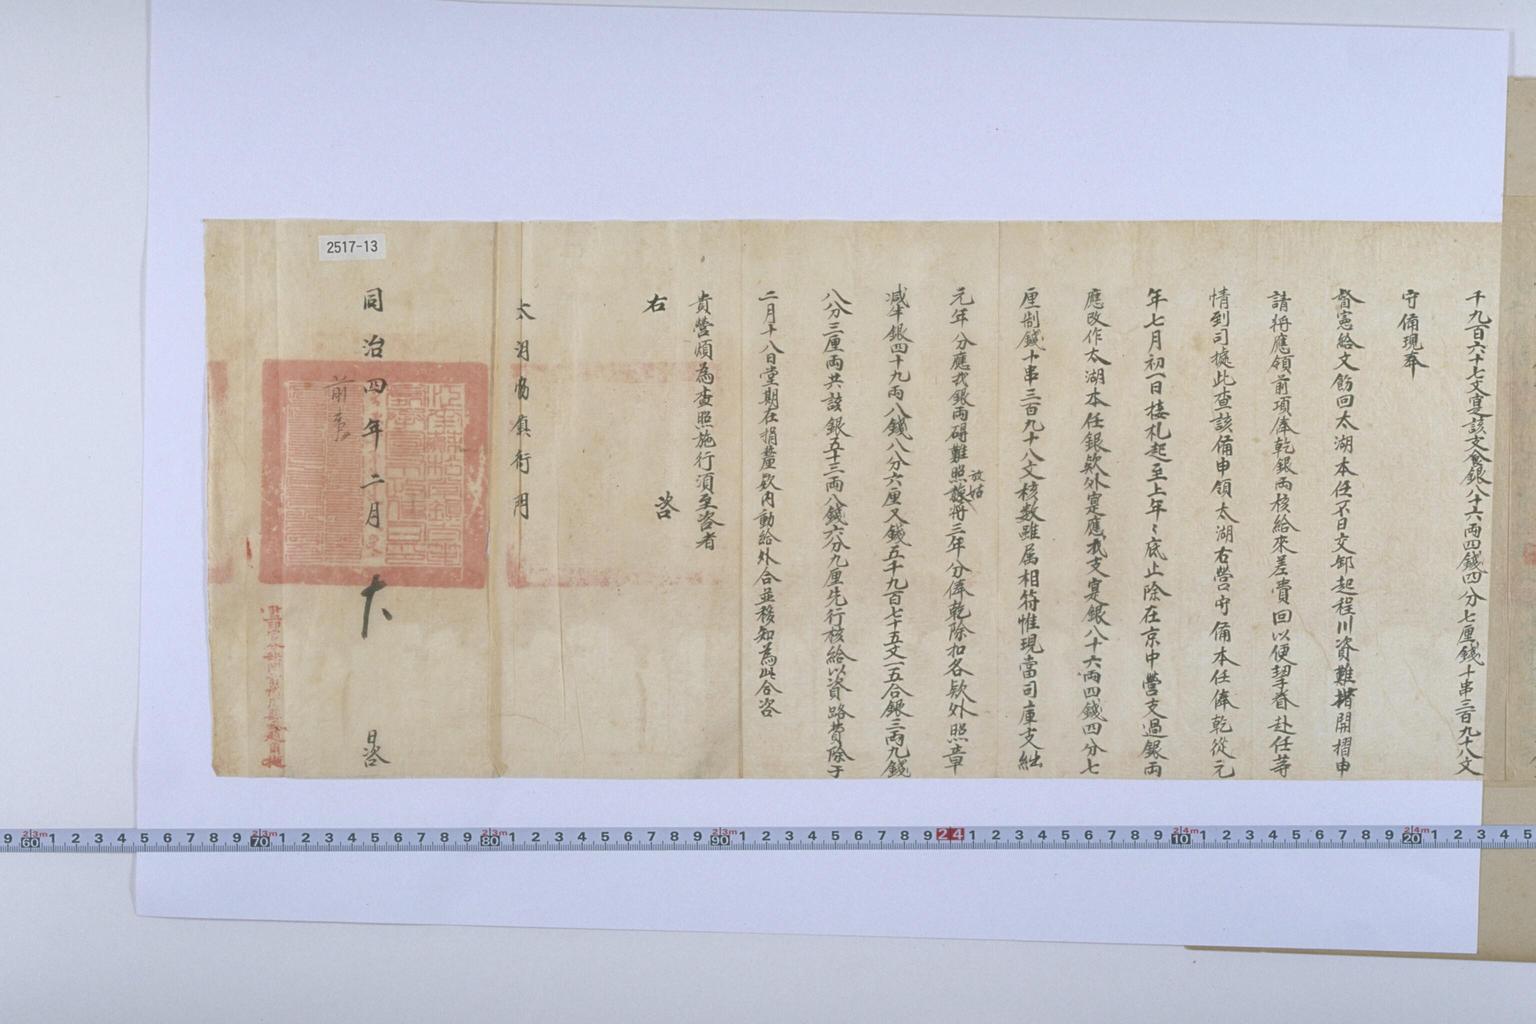 千九百六十七文寔該支食銀八十六兩四錢四分七厘錢十串三百九十八文
守備現奉
督憲給文飭回太湖本任不日交卸起程川資難措開摺申
請將應領前項俸乾銀兩核給來差賫回以便挈眷赴任等
情到司據此查該備申領太湖右營守備本任俸乾從元
年七月初一日接札起至上年〻底止除在京中營支過銀兩
應改作太湖本任銀欵外寔應找支寔銀八十六兩四錢四分七
厘制錢十串三百九十八文核數雖属相符惟現當司庫支絀
元年分應找銀兩碍難照將三年分俸乾除扣各欵外照章
故姑
减半銀四十九兩八錢八分六厘又錢五千九百七十五文一五合銀三兩九錢
八分三厘兩共該銀五十三兩八錢六分九厘先行核給以資路費除于
二月十八日堂期在捐釐欵內動給外合並移知為此合咨
貴營煩為查照施行須至咨者
右
咨
太湖協鎮衙門
同治四年二月
十八
日咨
前事
2517-13